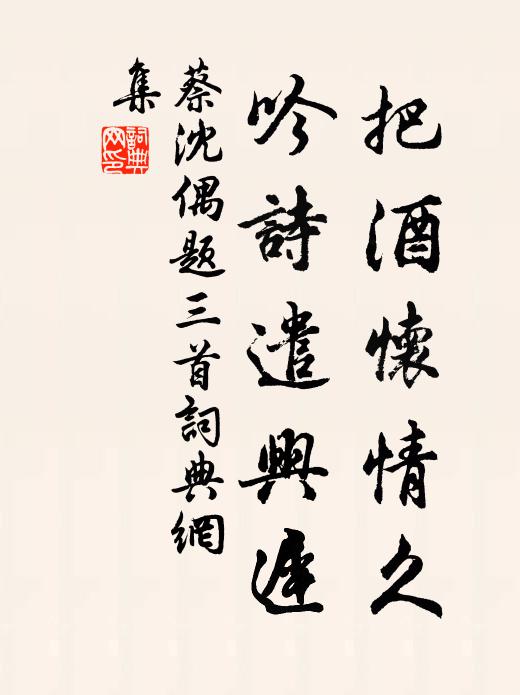 把酒懷情久
吟詩遣興遲
蔡沈偶題三首詞典網
集
詞典网印